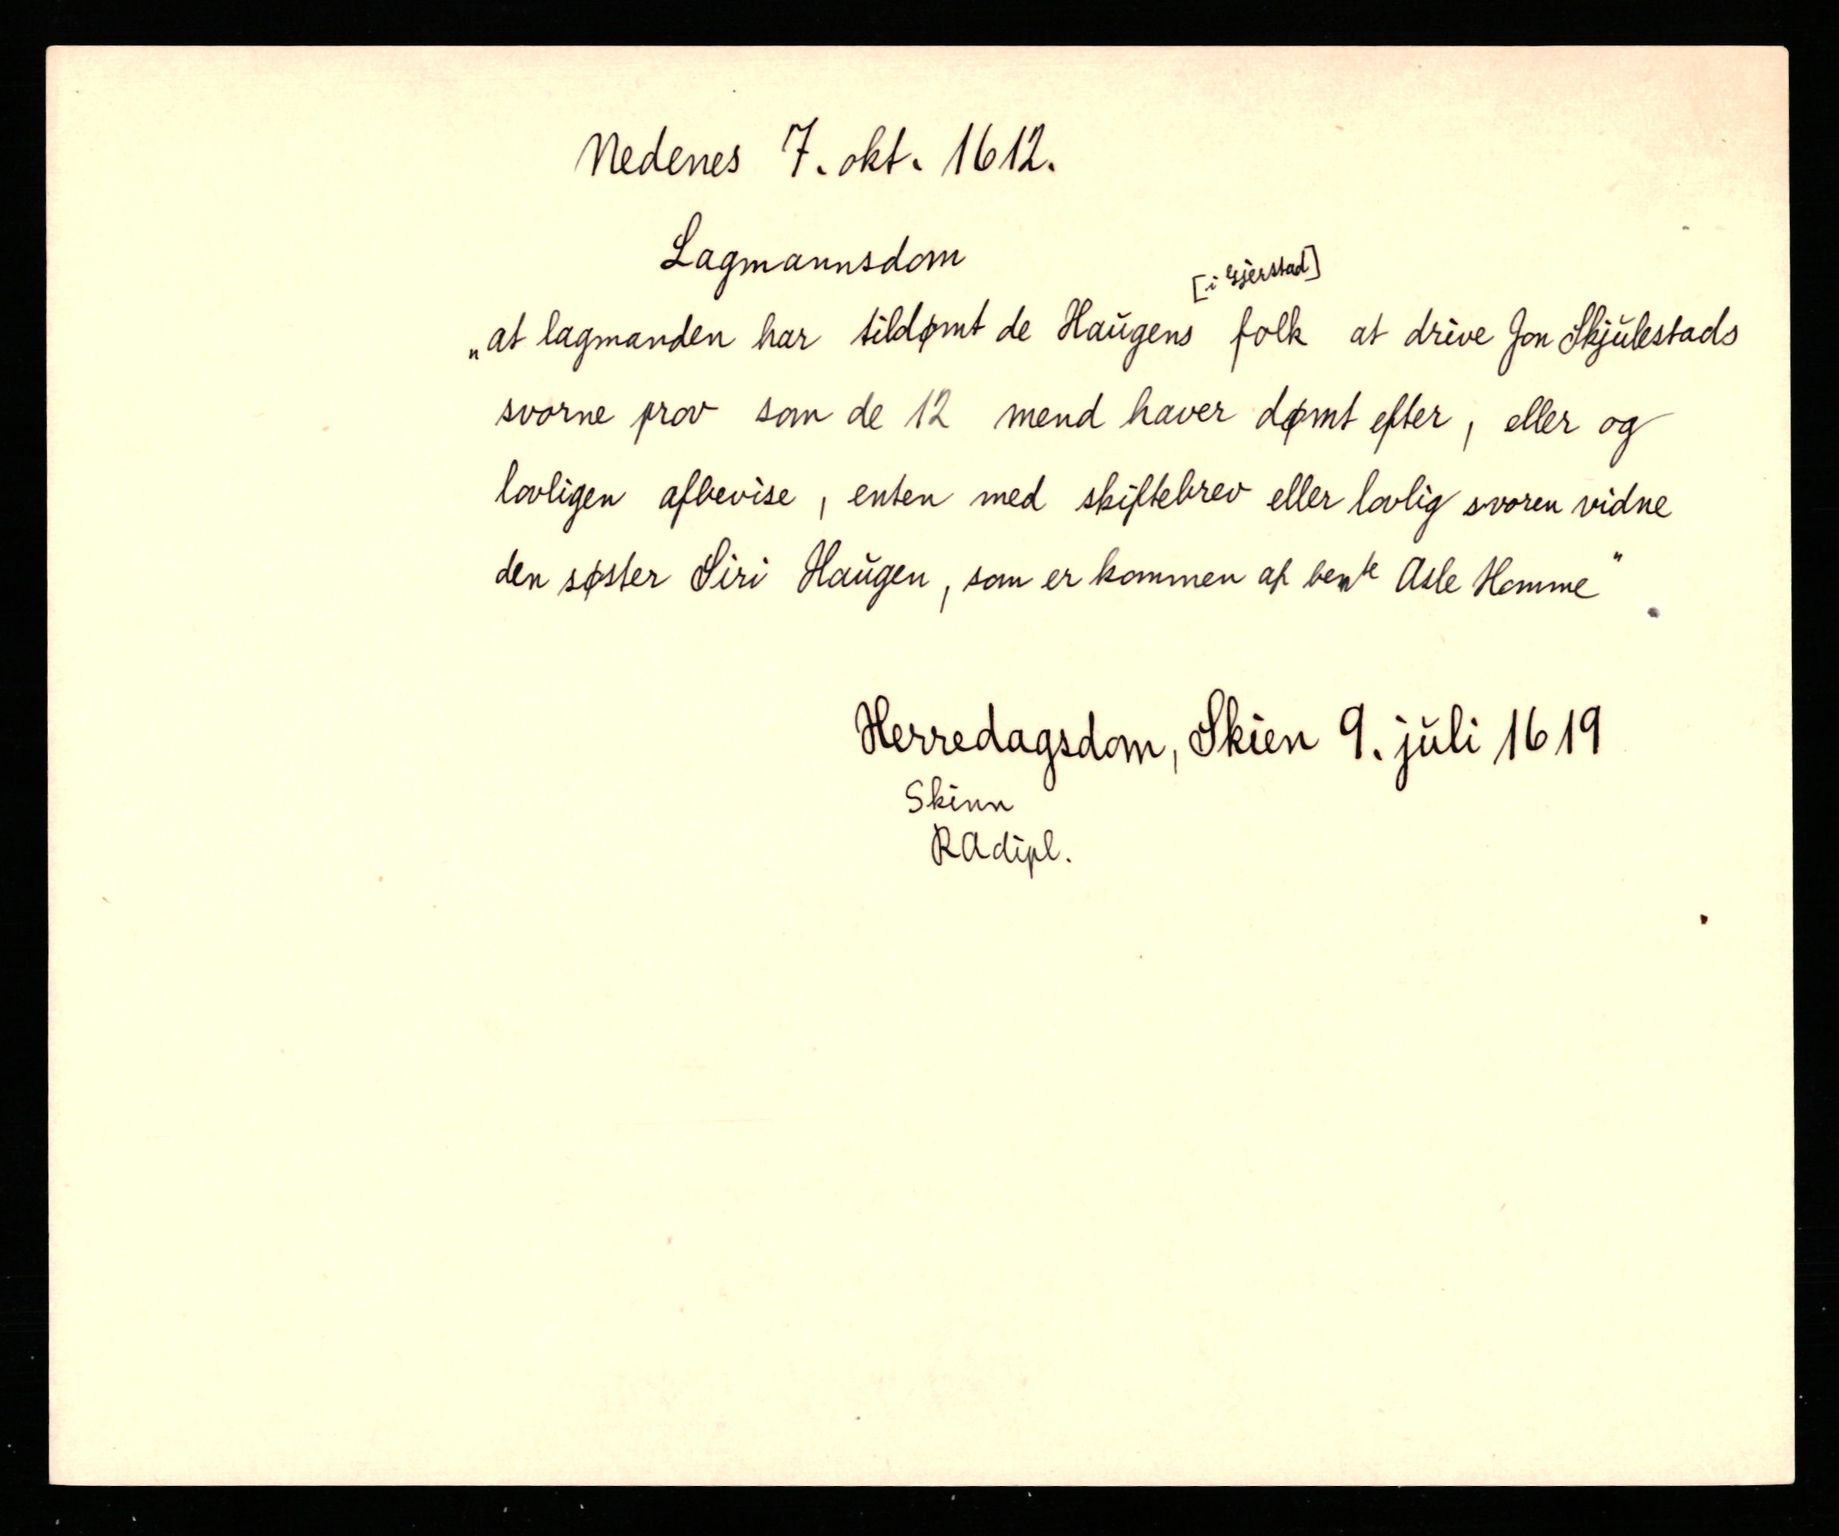 Nedenes 7. okt. 1612.
Lagmannsdom
[i Gjerstad]
„at lagmanden har tildømt de Haugens folk at drive Jon Skjulestads
svorne prov som de 12 mend haver dømt efter, eller og
lovligen afbevise, enten med skiftebrev eller lovlig svoren vidne
den søster Siri Haugen, som er kommen af bente Asle Homme"
Herredagsdom, Skien 9. juli 1619
Skinn
RAdipl.